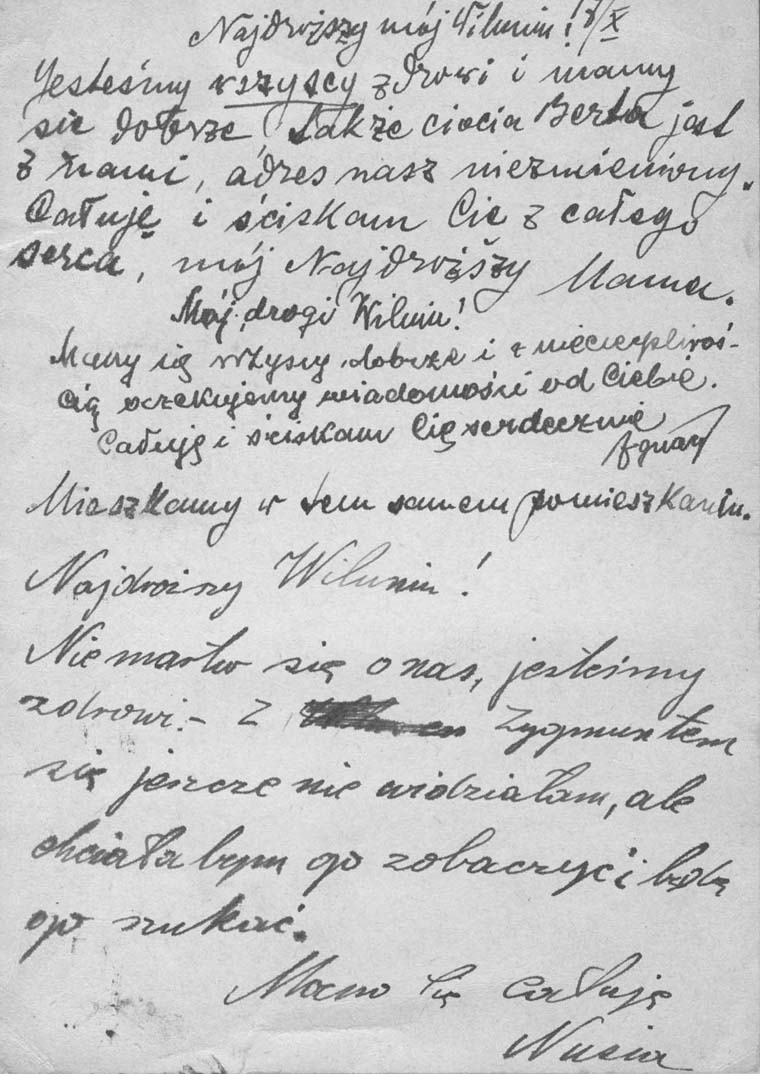 Najdroższy mój Wiluniu! 8/X
Jesteśmy wszyscy zdrowi i mamy
się dobrze, także ciocia Berta jest
z nami, adres nasz niezmieniony.
Całuję i ściskam Cię z całego
serca, mój Najdroższy Mama.
Mój drogi Wiluniu!
Mamy się wszyscy dobrze i z niecierpliwoś-
cią oczekujemy wiadomości od Ciebie.
Całuję i ściskam Cię serdecznie
Mieszkamy w tem samem pomieszkaniu.
Najdroższy Wiluniu!
Nie martw się o nas, jesteśmy
zdrowi.- Z Zygmuntem
się jeszcze nie widziałam, ale
chciałabym go zobaczyć i będę
go szukać.
Mocno Cię całuję
Nusia